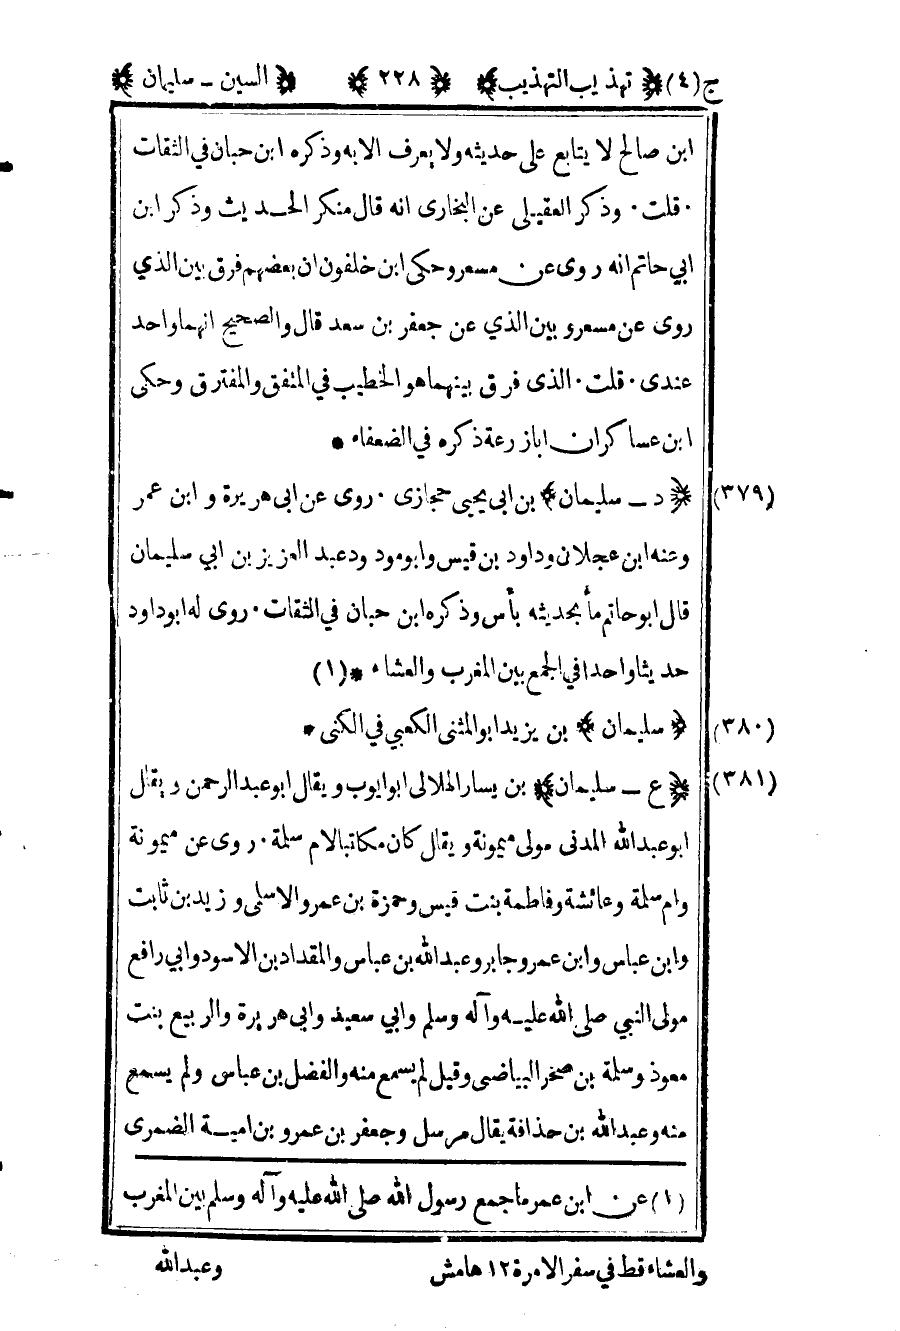 ج (٤) ﴿ تهذيب التهذيب ﴾ ﴿ ٢٢٨ ﴾ ﴿ السين ـ سليمان ﴾
ابن صالح لا يتابع على حديثه ولا يعرف الا به وذكره ابن حبان في الثقات
٠ قلت ٠ وذكر العقيلى عن البخارى انه قال منكر الحديث وذكر ابن
ابي حاتم انه روى عن مسعر وحكى ابن خلفون ان بعضهم فرق بين الذي
روى عن مسعر و بين الذي عن جعفر بن سعد قال والصحيح انهما واحد
عندى ٠ قلت ٠ الذى فرق بينهما هو الخطيب في المتفق والمفترق وحكى
ابن عساكر ان ابا زرعة ذكره في الضعفاء *
(٣٧٩) ﴿ د ـ سليمان ﴾ بن ابى يحيى حجازى ٠ روى عن ابى هريرة و ابن عمر
وعنه ابن عجلان وداود بن قيس وابو مودود عبد العزيز بن ابي سليمان
قال ابو حاتم ما بحديثه بأس وذكره ابن حبان في الثقات ٠ روى له ابو داود
حديثا واحدا في الجمع بين المغرب والعشاء * (١)
(٣٨٠) ﴿ سليمان ﴾ بن يزيد ابو المثنى الكعبي في الكنى *
(٣٨١) ﴿ ع ـ سليمان ﴾ بن يسار الهلالى ابو ايوب و يقال ابو عبد الرحمن و يقال
ابو عبد الله المدنى مولى ميمونة و يقال كان مكاتبا لام سلمة ٠ روى عن ميمونة
وام سلمة وعائشة وفاطمة بنت قيس وحمزة بن عمرو الاسلمى و زيد بن ثابت
وابن عباس وابن عمر وجابر وعبد الله بن عباس والمقداد بن الاسود وابي رافع
مولى النبي صلى الله عليه وآله وسلم وابي سعيد وابى هريرة والربيع بنت
معوذ وسلمة بن صخر البياضى وقيل لم يسمع منه والفضل بن عباس ولم يسمع
منه وعبد الله بن حذافة يقال مرسل وجعفر بن عمرو بن امية الضمرى
(١) عن ابن عمر ما جمع رسول الله صلى الله عليه وآله وسلم بين المغرب
والعشاء قط في سفر الا مرة ١٢ هامش
وعبد الله